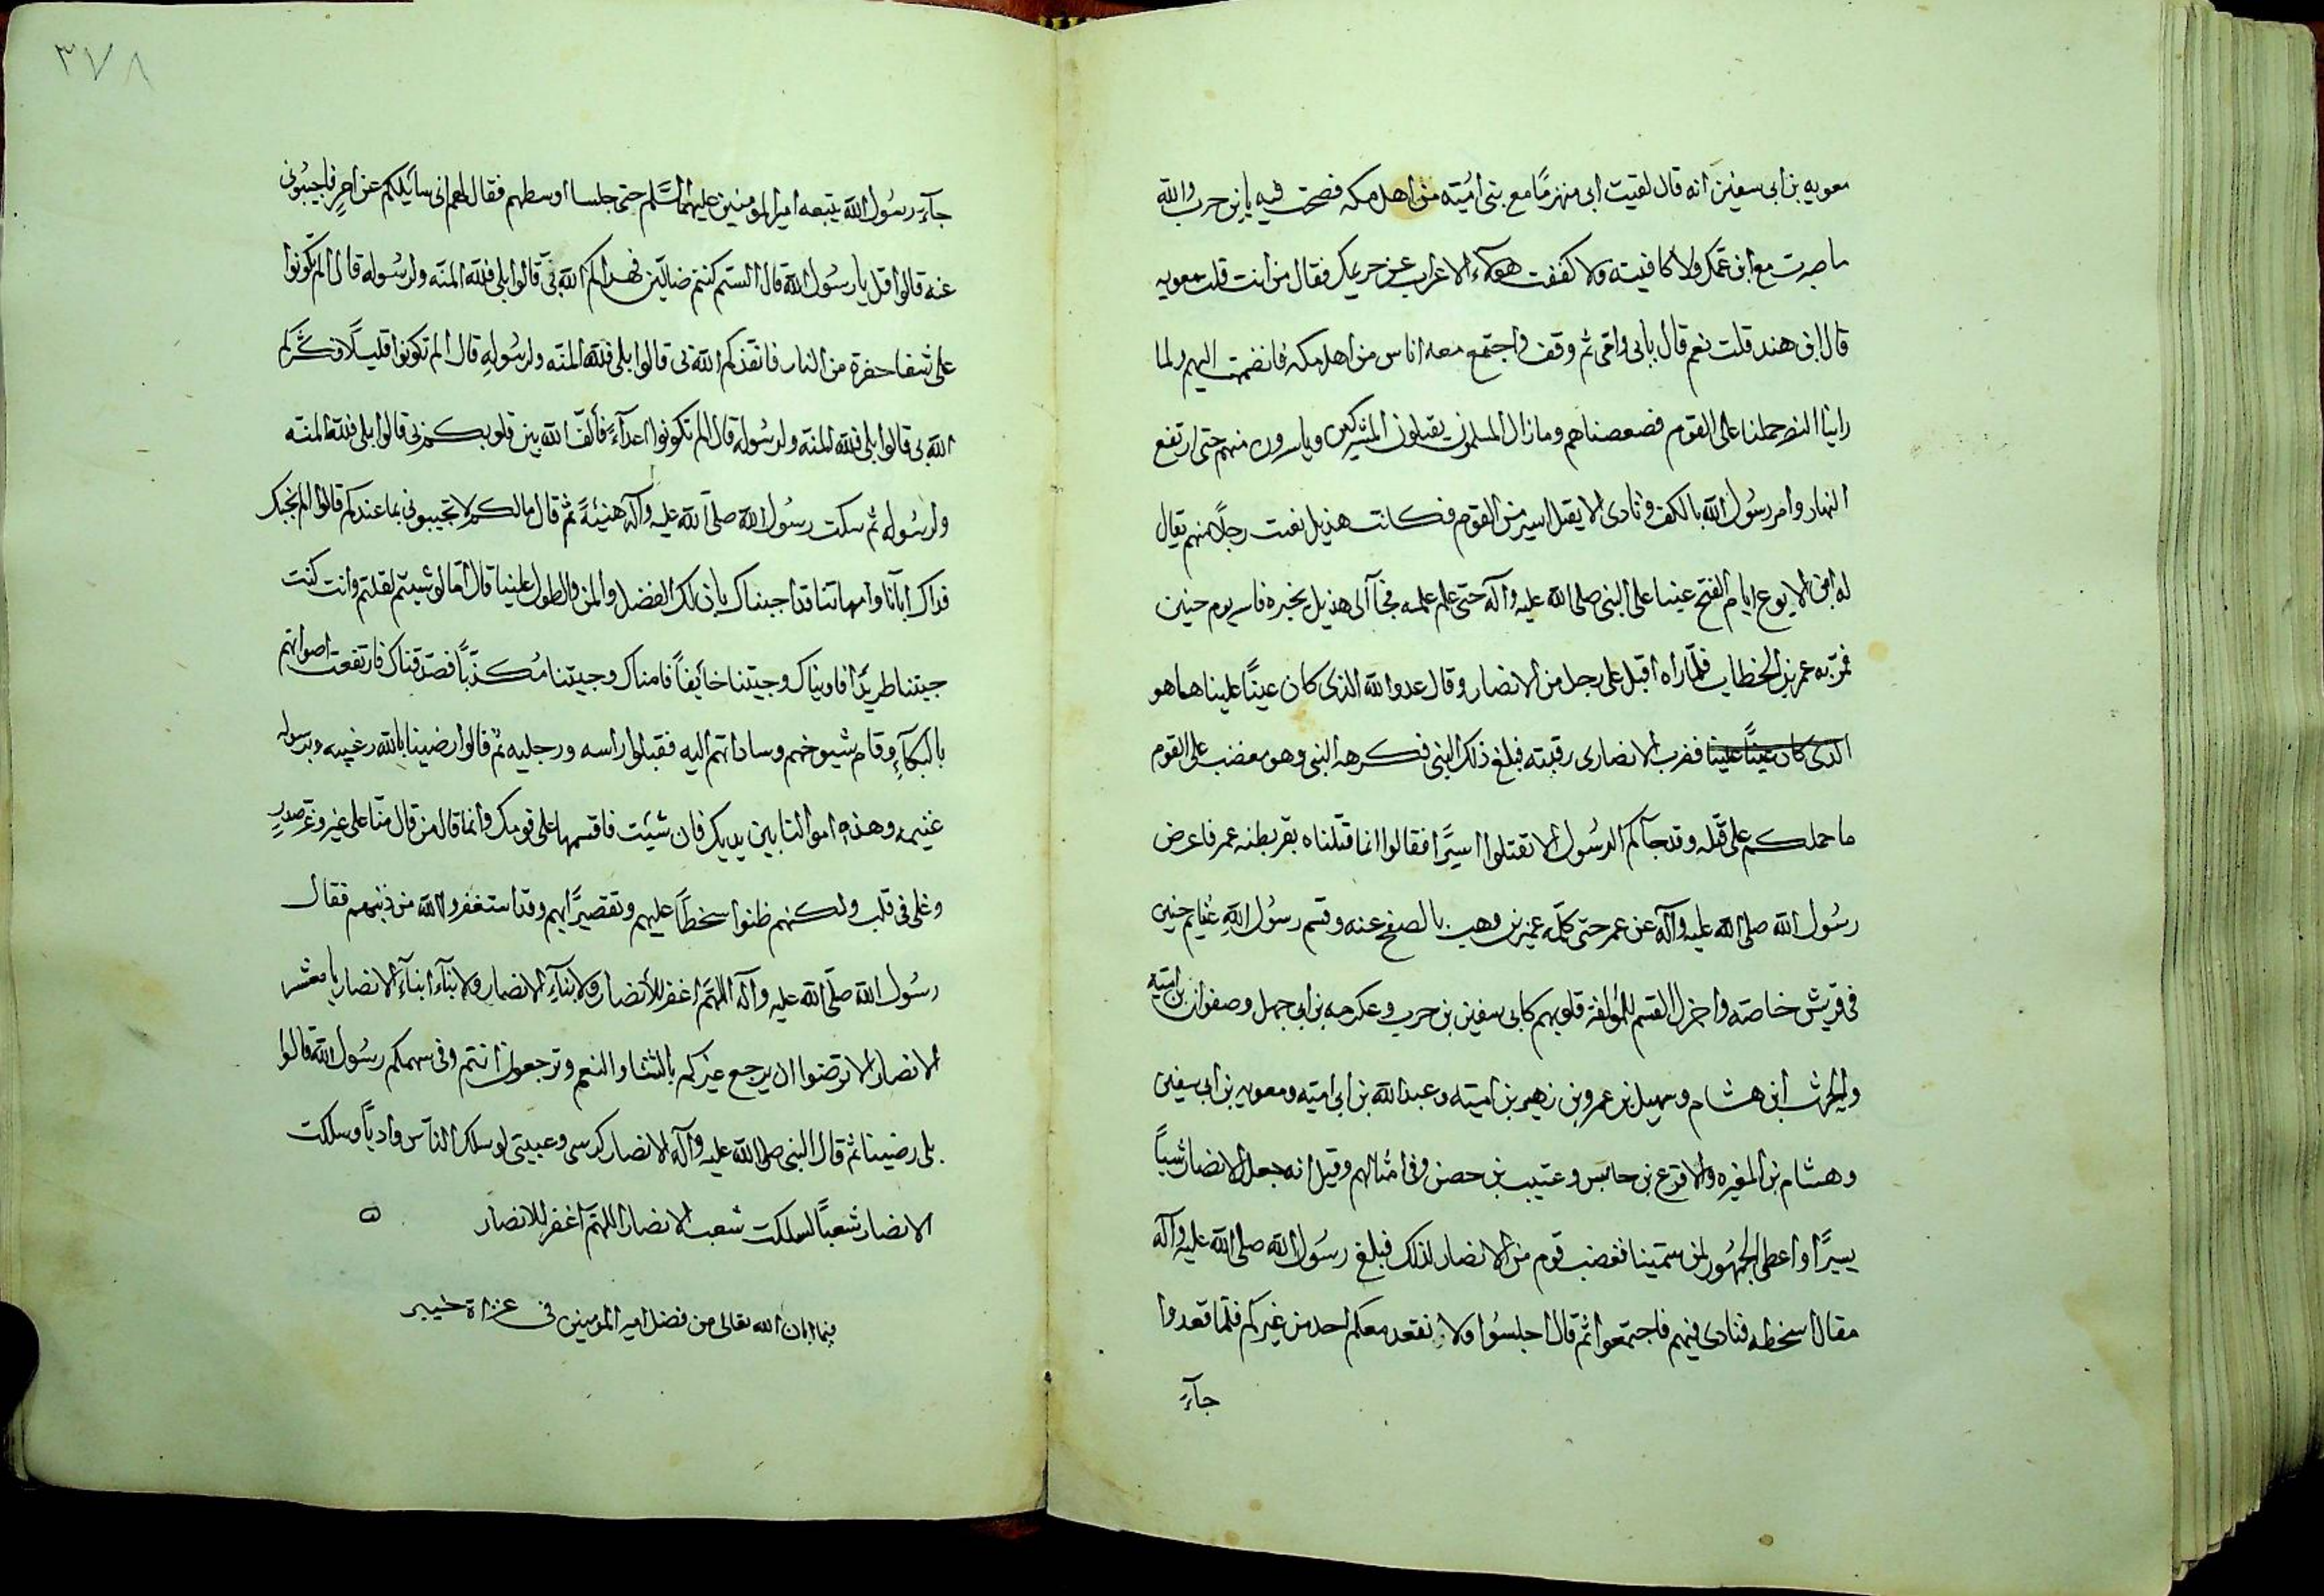 معويه بن ابى سفين انه قال لقيت ابى منهزمًا مع بنى اميّه من اهل مكه فصحت فيه يا بن حرب والله
ما صبرت مع ابن عمك ولا كافيته ولا كففت هولآء الاعراب عن حريمك فقال من انت قلت معويه
قال ابن هند قلت نعم قال بابى وامّى ثم وقف واجتمع معه اناس من اهل مكه فانضمت اليهم ولما
راينا النصر حملنا على القوم فضعضناهم وما زال المسلمون يقتلون المشركين وياسرون منهم حتى ارتفع
النهار وامر رسُول الله بالكف ونادى الا يقتل اسير من القوم فكانت هذيل بعثت رجلًا منهم يقال
له ابن الايوع ايام الفتح عينا على النبى صلى الله عليه وآله حتى علم علمه فجآ الى هذيل بخبره فاسر يوم حنين
فمرّ به عمر بن الخطاب فلمّا راه اقبل على رجل من الانصار وقال عدو الله الذى كان عينًا علينا ها هو
الذى كان عينًا علينا فضرب الانصارى رقبته فبلغ ذلك النبى فكرهه النبى وهو مغضب على القوم
ما حملكم على قتله وقد جآكم الرسُول الا تقتلوا اسيرًا فقالوا انما قتلناه بقر بطنه عمر فاعرض
رسُول الله صلى الله عليه وآله عن عمر حتى كلّمه عمير بن وهب بالصفح عنه وقسم رسُول الله غنايم حنين
فى قريش خاصّه واجزل القسم للمؤلفة قلوبهم كابى سفين بن حرب وعكرمه بن ابى جهل وصفوان بن اميّه
والحرث ابن هشام وسهيل بن عمرو بن زهير بن اميّه وعبد الله بن ابى اميّه ومعويه بن ابى سفين
وهشام بن المغيره والاقرع بن حابس وعتيبه بن حصن وفى امثالهم وقيل انه جعل الانصار شيئاً
يسيرًا واعطى الجمهُور لمن سمّينا فغضب قوم من الانصار لذلك فبلغ رسُول الله صلى الله عليه وآله
مقال اسخطه فنادى فيهم فاجتمعوا ثم قال اجلسُوا ولا نقعد معكم احد من غيركم فلمّا قعدوا
جآءَ
٣٧٨
جآءَ رسُول الله يتبعه امير المومنين عليهما السّلم حتى جلسا اوسطهم فقال لهم انى سائلكم عن امرٍ فاجيبُونى
عنه قالوا قل يا رسُول الله قال الستم كنتم ضالّين فهداكم الله بى قالوا بلى فللّه المنّه ولرسُوله قال الم تكونوا
على شفا حفرة من النار فانقذكم الله بى قالوا بلى فلله المنّه ولرسُوله قال الم تكونوا قليلًا فكثّركم
الله بى قالوا بلى فلله المنّه ولرسُوله قال الم تكونوا اعدآءً فألّف الله بين قلوبكم بى قالوا بلى فلله المنّه
ولرسُوله ثم سكت رسُول الله صلّى الله عليه وآله هنيئةً ثم قال مالكم لا تجيبونى بما عندكم قالوا الم نجبك
فداك اباؤنا وامهاتنا قد اجبناك بان لك الفضل والمن والطول علينا قال اما لو شيتم لقلتم وانت كنت
جيتنا طريدًا فاويناك وجيتنا خائفاً فامناك وجيتنا مُكذّباً فصدّقناك فارتفعت اصواتهم
بالبكآءِ وقام شيوخهم وساداتهم اليه فقبلوا راسه ورجليه ثم قالوا رضينا بالله وبرسوله
غنيمه وهذه اموالنا بين يديك فان شئت فاقسمها على قومك وانما قال من قال منّا على غير وغر صدرٍ
وغلى فى قلب ولكنهم ظنوا سخطاً عليهم وتقصيرًا بهم وقد استغفروا الله من ذنبهم فقال
رسُول الله صلّى الله عليه وآله اللهمّ اغفر للأنصار ولابنآءِ الانصار ولابنآء ابنآءِ الانصار يا معشر
الانصار الا ترضوا ان يرجع غيركم بالشا والنعم وترجعون انتم وفى سهمكم رسُول الله قالوا
بلى رضينا ثم قال النبى صلى الله عليه وآله الانصار كرسى وعيبتى لو سلك الناس وادياً وسلكت
الانصار شعبًا لسلكت شعب الانصار اللهمّ اغفر للانصار
فيما ابان الله تعالى من فضل امير المومنين فى غزاة خيبر